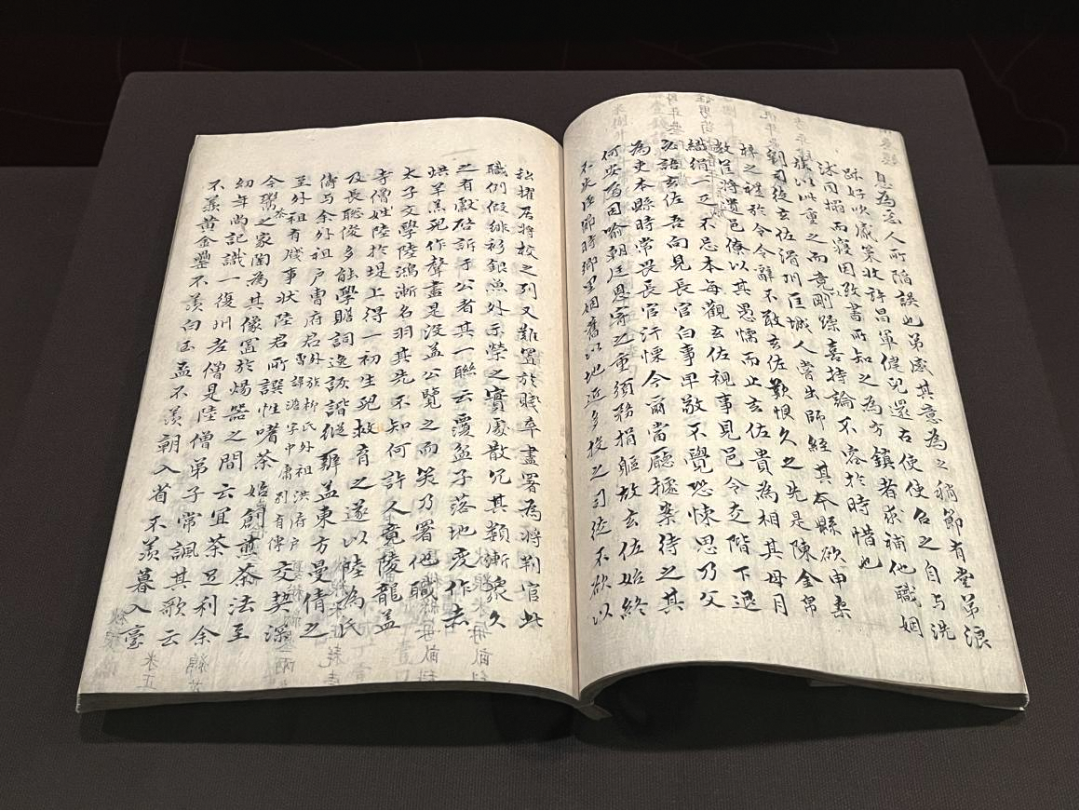 息為惡人所陷誤也弟感其意為之稍節有堂弟浪
跡好吹觱篥投許昌軍健兒還古使使召之自与洗
沐同榻而寢因致書所知之為方鎮者求補他職姻
族以此重之而竟剛躁喜持論不容於時惜也
劉司徒玄佐滑州匡城人嘗出師經其本縣欲申桑
梓之礼於令令辭不敢玄佐歎恨久之先是陳金帛
將遺邑僚以其愚懦而止玄佐貴為相其母月
織絁一疋不忘本每觀玄佐視事見邑令走階下退
必語玄佐吾向見長官白事卑敬不覺恐悚思乃父
為吏本縣時常畏長官汗慄今爾當廳據案待之其
何安焉因喻朝廷恩寄之重須務捐軀故玄佐始終
不失臣節時鄉里姻舊以地近多投之司徒不欲以
私擢居將校之列又難置於賤卒盡署為將判官此
職例假緋衫銀魚外示榮之實處散冗其類漸衆久
之有獻啓訴于公者其一聯云覆盆子落地變作赤
烘羊羔兒作聲盡是沒益公覽之而笑乃署他職
太子文學陸鴻漸名羽其先不知何許人竟陵龍蓋
寺僧姓陸於堤上得一初生兒收育之遂以陸為氏
及長聰俊多能學贍詞逸詼諧縱辯蓋東方曼倩之
儔与余外祖戶曹府君外族柳氏外祖洪府戶曹諱澹字中庸別有傳交契深
至外祖有牋事狀陸君所譔性嗜茶始創煎茶法至
今鬻茶之家陶為其像置於煬器之間云宜茶足利余
幼年尚記識一復州老僧是陸僧弟子常諷其歌云
不羨黃金罍不羨白玉盃不羨朝入省不羨暮入臺